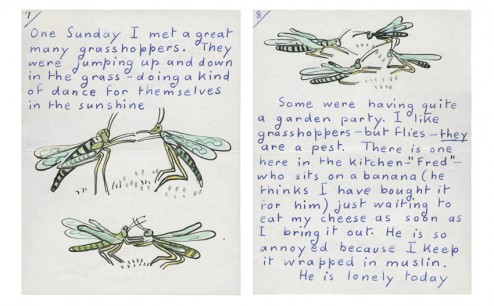 7
One Sunday I met a great
many grasshoppers. They
were jumping up and down
in the grass – doing a kind
of dance for themselves
in the sunshine
8
Some were having quite
a garden party. I like
grasshoppers – but flies – they
are a pest. There is one
here in the kitchen – "Fred" –
who sits on a banana (he
thinks I have bought it
for him) just waiting to
eat my cheese as soon as
I bring it out. He is so
annoyed because I keep
it wrapped in muslin.
He is lonely today